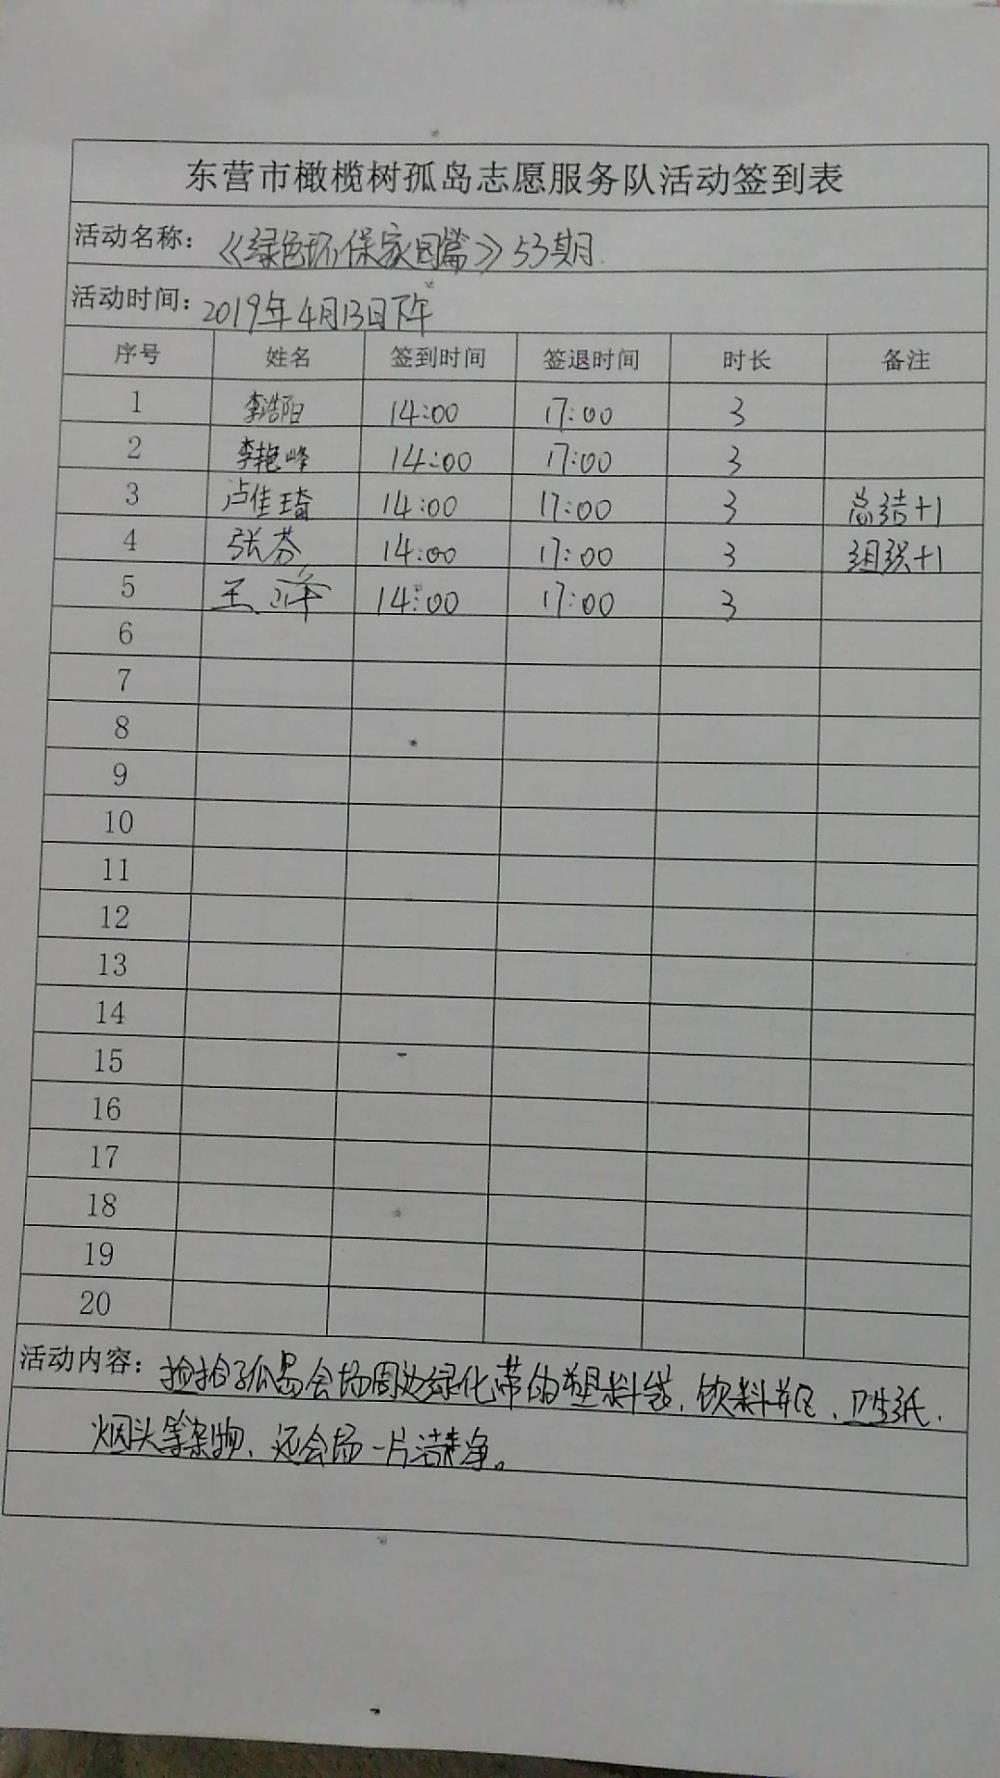 东营市橄榄树孤岛志愿服务队活动签到表
活动名称：《绿色环保家园篇》53期.
活动时间：2019年4月13日下午
序号 姓名 签到时间 签退时间 时长 备注
1 李浩阳 14:00 17:00 3
2 李艳峰 14:00 17:00 3
3 卢佳琦 14:00 17:00 3 总结+1
4 张芬 14:00 17:00 3 组织+1
5 王峰 14:00 17:00 3
6
7
8
9
10
11
12
13
14
15
16
17
18
19
20
活动内容：捡拾孤岛会场周边绿化带的塑料袋、饮料瓶、卫生纸、
烟头等杂物、还会场一片洁净。